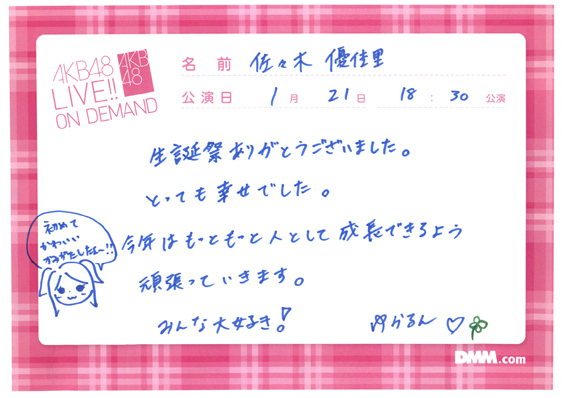 AKB48
LIVE!!
ON DEMAND
AKB
48
名前 佐々木 優佳里
公演日 1月 21日 18:30 公演
生誕祭ありがとうございました。
とっても幸せでした。
今年はもっともっと人として成長できるよう
頑張っていきます。
みんな大好き!
ゆかるん♡
初めて
かわいい
かみがたしたよ〜!!
DMM.com